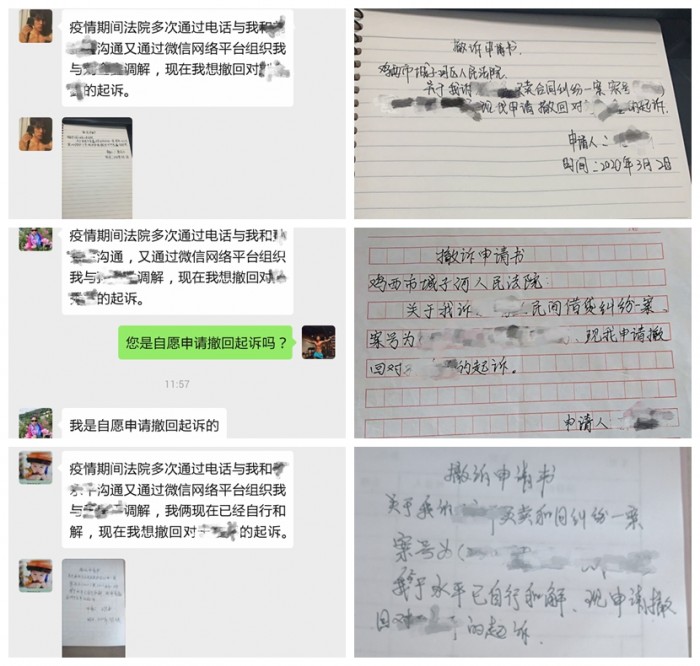 疫情期间法院多次通过电话与我和
沟通又通过微信网络平台组织我
与调解，现在我想撤回对
的起诉。
撤诉申请书.
鸡西市城子河区人民法院.
关于我诉买卖合同纠纷一案 案号
现我申请撤回对的起诉.
申请人：
时间：2020年3月2日
疫情期间法院多次通过电话与我和
沟通，又通过微信网络平台组织
我与调解，现在我想撤回对
的起诉。
您是自愿申请撤回起诉吗？
11:57
我是自愿申请撤回起诉的
撤诉申请书
鸡西市城子河人民法院：
关于我诉、民间借贷纠纷一案
案号为、现我申请撤
回对的起诉。
申请人
疫情期间法院多次通过电话与我和
沟通又通过微信网络平台组织
我与调解，我俩现在已经自行和
解，现在我想撤回对的起诉。
撤诉申请书
关于我诉买卖合同纠纷一案
案号为(
水平已自行和解、现申请撤
回对的起诉.